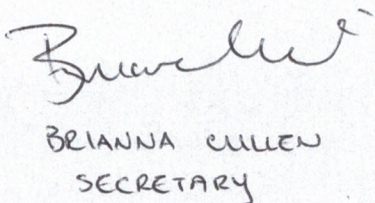 BRIANNA CULLEN
SECRETARY